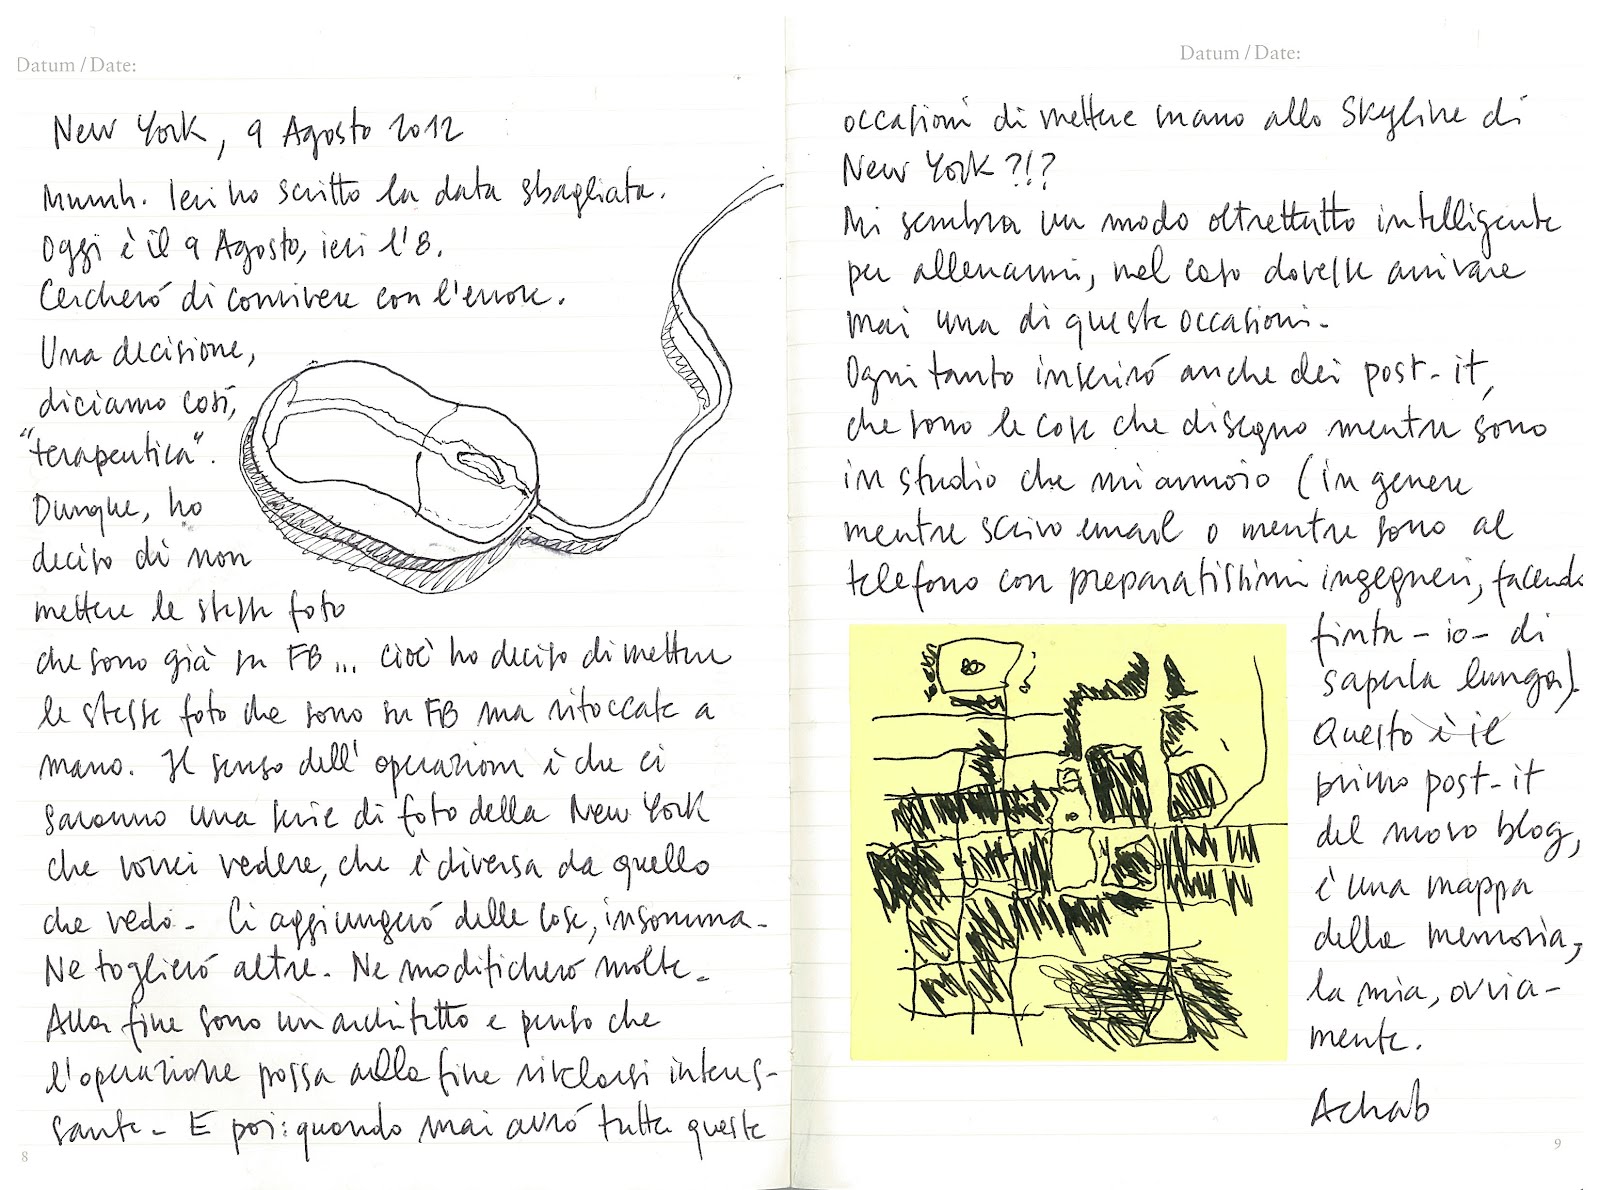 Datum / Date:
New York, 9 Agosto 2012
Mumh. Ieri ho scritto la data sbagliata.
Oggi è il 9 Agosto, ieri l'8.
Cercheró di convivere con l'errore.
Una decisione,
diciamo così,
"terapeutica".
Dunque, ho
deciso di non
mettere le stesse foto
che sono già su FB... cioè ho deciso di mettere
le stesse foto che sono su FB ma ritoccate a
mano. Il senso dell'operazione è che ci
saranno una serie di foto della New York
che vorrei vedere, che è diversa da quello
che vedo - Ci aggiungeró delle cose, insomma -
Ne toglieró altre - Ne modificheró molte -
Alla fine sono un architetto e penso che
l'operazione possa alla fine rivelarsi interes-
sante - E poi: quando mai avró tutte queste
8
Datum / Date:
occasioni di mettere mano allo Skyline di
New York?!?
Mi sembra un modo oltrettutto intelligente
per allenarmi, nel caso dovesse arrivare
mai una di queste occasioni -
Ogni tanto inseriró anche dei post-it,
che sono le cose che disegno mentre sono
in studio che mi annoio (in genere
mentre scrivo email o mentre sono al
telefono con preparatissimi ingegneri, facendo
finta - io - di
saperla lunga).
Questo è il
primo post-it
del nuovo blog,
è una mappa
della memoria,
la mia, ovvia-
mente.
Achab
9